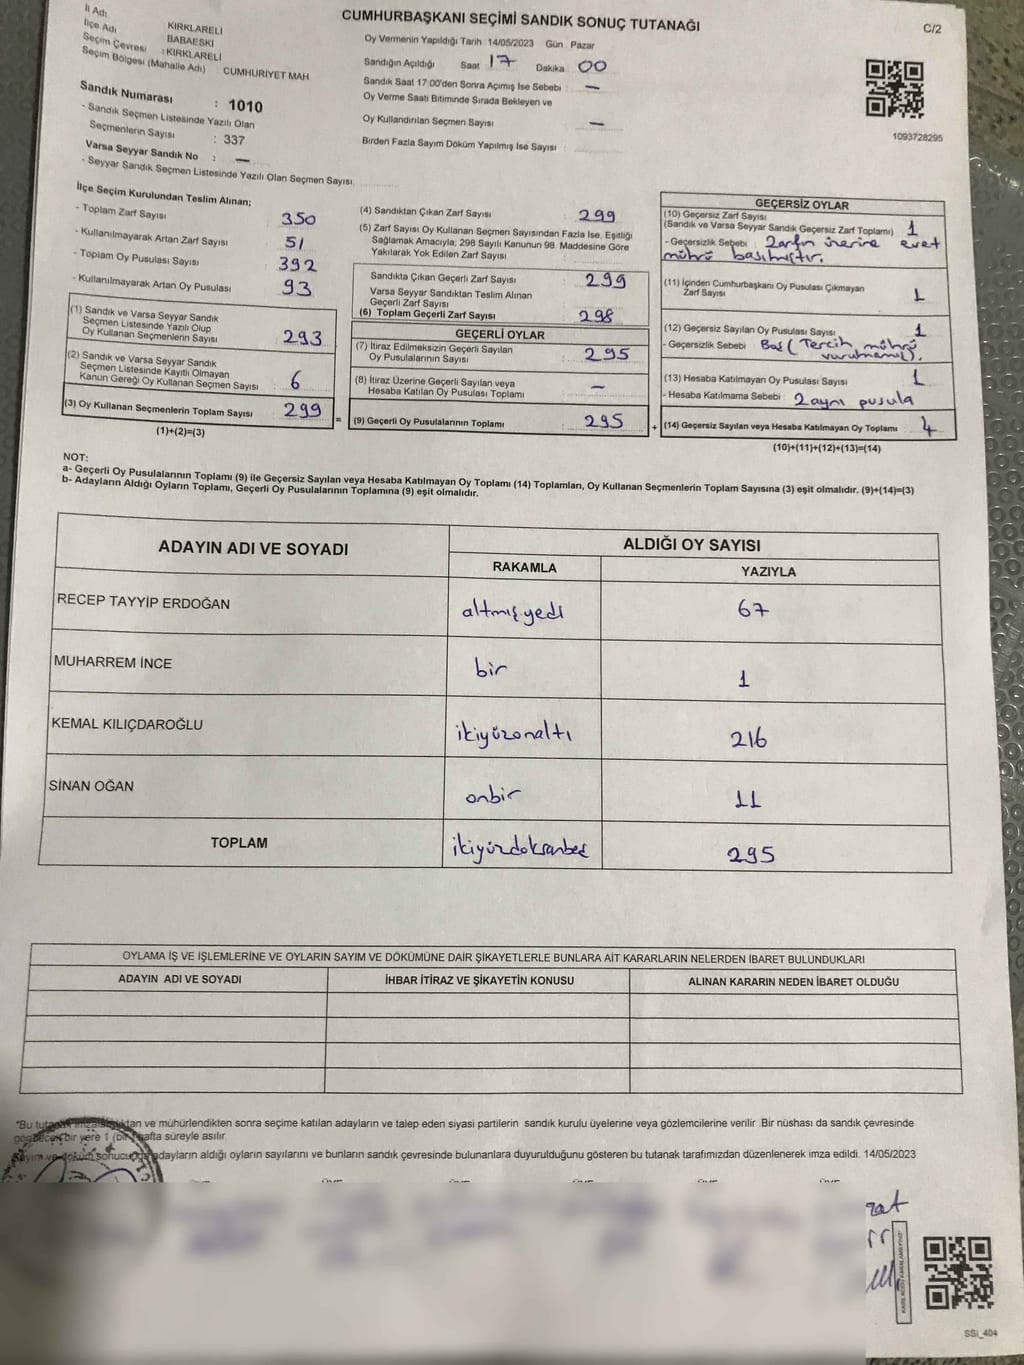 CUMHURBAŞKANI SEÇİMİ SANDIK SONUÇ TUTANAĞI
C/2
İl Adı KIRKLARELİ
İlçe Adı BABAESKİ
Seçim Çevresi : KIRKLARELİ
Seçim Bölgesi (Mahalle Adı) CUMHURİYET MAH.
Sandık Numarası : 1010
- Sandık Seçmen Listesinde Yazılı Olan
Seçmenlerin Sayısı : 337
Varsa Seyyar Sandık No : —
- Seyyar Sandık Seçmen Listesinde Yazılı Olan Seçmen Sayısı
Oy Vermenin Yapıldığı Tarih 14/05/2023 Gün Pazar
Sandığın Açıldığı Saat 17 Dakika 00
Sandık Saat 17:00'den Sonra Açımış İse Sebebi : —
Oy Verme Saati Bitiminde Sırada Bekleyen ve
Oy Kullandırılan Seçmen Sayısı : —
Birden Fazla Sayım Döküm Yapılmış İse Sayısı :
1093728295
İlçe Seçim Kurulundan Teslim Alınan;
- Toplam Zarf Sayısı : 350
- Kullanılmayarak Artan Zarf Sayısı : 51
- Toplam Oy Pusulası Sayısı : 392
- Kullanılmayarak Artan Oy Pusulası : 93
(1) Sandık ve Varsa Seyyar Sandık
Seçmen Listesinde Yazılı Olup
Oy Kullanan Seçmenlerin Sayısı : 293
(2) Sandık ve Varsa Seyyar Sandık
Seçmen Listesinde Kayıtlı Olmayan
Kanun Gereği Oy Kullanan Seçmen Sayısı : 6
(3) Oy Kullanan Seçmenlerin Toplam Sayısı : 299
(1)+(2)=(3)
=
(4) Sandıktan Çıkan Zarf Sayısı : 299
(5) Zarf Sayısı Oy Kullanan Seçmen Sayısından Fazla İse, Eşitliği
Sağlamak Amacıyla; 298 Sayılı Kanunun 98. Maddesine Göre
Yakılarak Yok Edilen Zarf Sayısı :
Sandıkta Çıkan Geçerli Zarf Sayısı : 299
Varsa Seyyar Sandıktan Teslim Alınan
Geçerli Zarf Sayısı :
(6) Toplam Geçerli Zarf Sayısı : 298
GEÇERLİ OYLAR
(7) İtiraz Edilmeksizin Geçerli Sayılan
Oy Pusulalarının Sayısı : 295
(8) İtiraz Üzerine Geçerli Sayılan veya
Hesaba Katılan Oy Pusulası Toplamı : —
(9) Geçerli Oy Pusulalarının Toplamı : 295
+
GEÇERSİZ OYLAR
(10) Geçersiz Zarf Sayısı
(Sandık ve Varsa Seyyar Sandık Geçersiz Zarf Toplamı) : 1
- Geçersizlik Sebebi : Zarfın üzerine evet
mührü basılmıştır.
(11) İçinden Cumhurbaşkanı Oy Pusulası Çıkmayan
Zarf Sayısı : 1
(12) Geçersiz Sayılan Oy Pusulası Sayısı : 1
- Geçersizlik Sebebi : Boş (Tercih mührü
vurulmamış).
(13) Hesaba Katılmayan Oy Pusulası Sayısı : 1
- Hesaba Katılmama Sebebi : 2 aynı pusula
(14) Geçersiz Sayılan veya Hesaba Katılmayan Oy Toplamı : 4
(10)+(11)+(12)+(13)=(14)
NOT:
a- Geçerli Oy Pusulalarının Toplamı (9) ile Geçersiz Sayılan veya Hesaba Katılmayan Oy Toplamı (14) Toplamları, Oy Kullanan Seçmenlerin Toplam Sayısına (3) eşit olmalıdır. (9)+(14)=(3)
b- Adayların Aldığı Oyların Toplamı, Geçerli Oy Pusulalarının Toplamına (9) eşit olmalıdır.
ADAYIN ADI VE SOYADI
ALDIĞI OY SAYISI
RAKAMLA YAZIYLA
RECEP TAYYİP ERDOĞAN altmışyedi 67
MUHARREM İNCE bir 1
KEMAL KILIÇDAROĞLU ikiyüzonaltı 216
SİNAN OĞAN onbir 11
TOPLAM ikiyüzdoksanbeş 295
OYLAMA İŞ VE İŞLEMLERİNE VE OYLARIN SAYIM VE DÖKÜMÜNE DAİR ŞİKAYETLERLE BUNLARA AİT KARARLARIN NELERDEN İBARET BULUNDUKLARI
ADAYIN ADI VE SOYADI İHBAR İTİRAZ VE ŞİKAYETİN KONUSU ALINAN KARARIN NEDEN İBARET OLDUĞU
*Bu tutanak imzalandıktan ve mühürlendikten sonra seçime katılan adayların ve talep eden siyasi partilerin sandık kurulu üyelerine veya gözlemcilerine verilir. Bir nüshası da sandık çevresinde
görülecek bir yere 1 (bir) hafta süreyle asılır.
Sayım ve döküm sonucunda adayların aldığı oyların sayılarını ve bunların sandık çevresinde bulunanlara duyurulduğunu gösteren bu tutanak tarafımızdan düzenlenerek imza edildi. 14/05/2023
SSİ_404